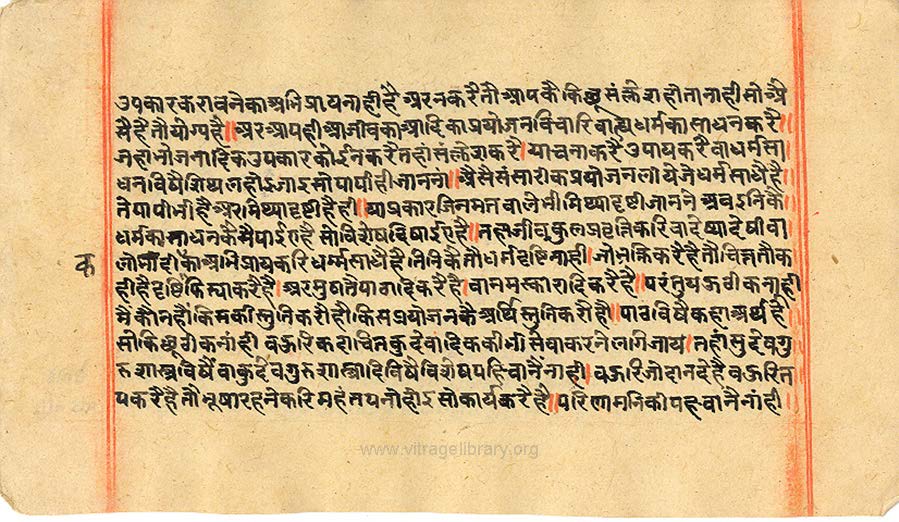 उपकार करावने का अभिप्राय नाही है अर न करै तौ आप कै किछू संक्लेश होता नाही सो अै
सैं है तौ योग्य है॥ अर आप ही आजीवका आदि का प्रयोजन विचारि वाह्य धर्म का साधन करै॥
जहां भोजनादिक उपकार कोई न करै तहां संक्लेश करै। याचना करै उपाय करै वा धर्म सा
धन विषै शिथल होइ जाइ सो पापी ही जाननां॥ अैसै संसारीक प्रयोजन लीये जे धर्म साधै है
ते पापी भी है अर मिथ्यादृष्टी है ही॥ या प्रकार जिनमत वाले भी मिथ्यादृष्टी जानने अब इनि कै
धर्म का साधन कैसै पाईए है सो विशेष दिषाईए है॥ तहां जीव कुल प्रवृत्ति करि वा देष्यां देषी वा
लोभादी का अभिप्राय करि धर्म साधै है तिनि कै तौ धर्मदृष्टि नाही। जो भक्ति करै है तौ चित्त तौ क
क
ही है दृष्टि फिर्या करै है। अर मुष तै पाठादि करै है। वा नमस्कारादि करै है॥ परंतु यऊ ठीक नाही
मैं कौन हौं किस की स्तुति करौ हौ किस प्रयोजन कै अर्थि स्तुति करौ हौ॥ पाठ विषै कहा अर्थ है
सो किछू ठीक नांही वऊरि कदाचित कुदेवादिक की भी सेवा करने लगि जाय। तहां सुदेव गु
रु शास्त्र विषै वा कुदेव गुरु शास्त्रादि विषै विशेष पहिचानै नांही। वऊरि जो दान दे है वऊरि त
प करै है तौ भूषा रहने करि महंतपनो होइ सो कार्य करै है॥ परिणामनि की पहचानै नांही
www.vitragelibrary.org